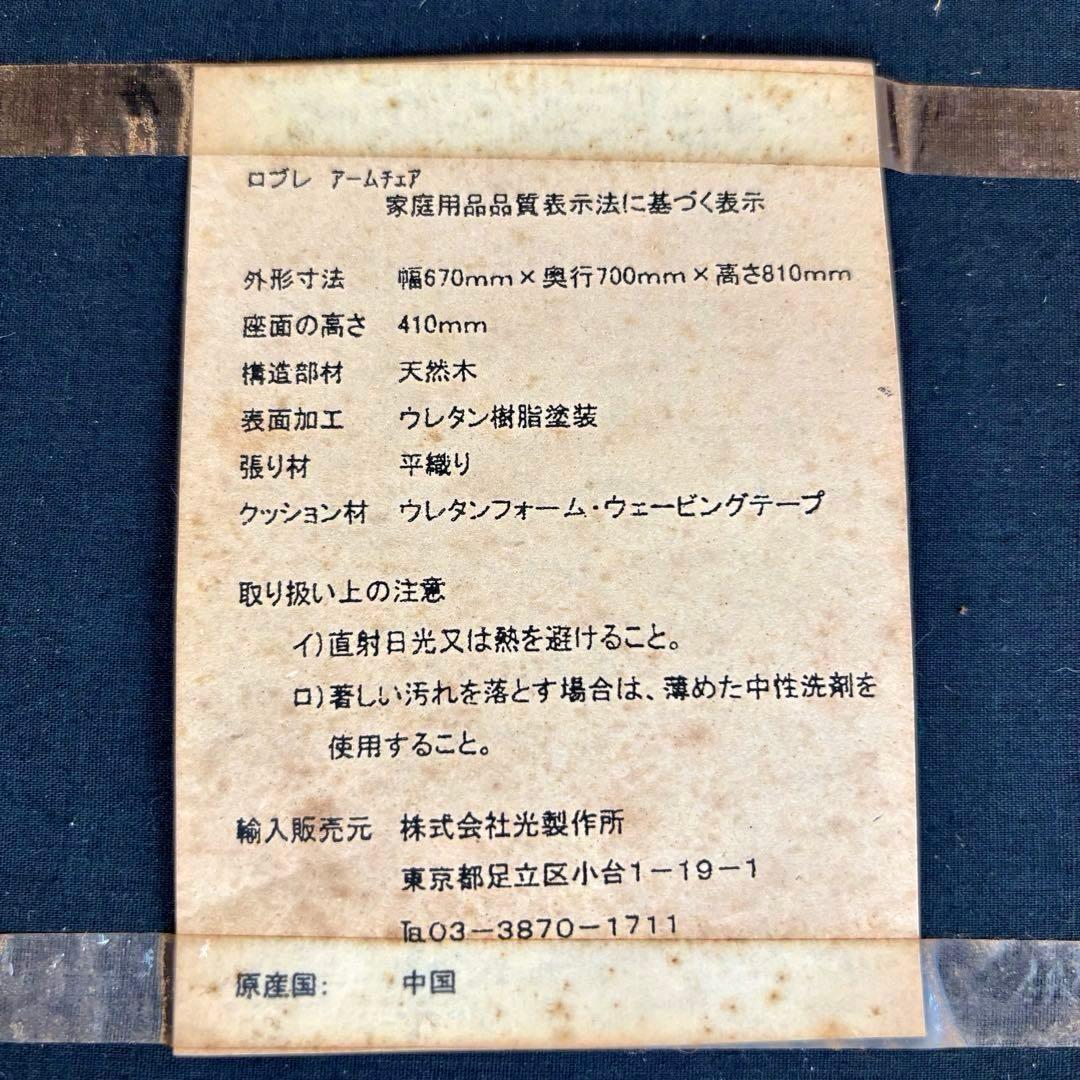 ロブレ アームチェア
家庭用品品質表示法に基づく表示
外形寸法 幅670mm×奥行700mm×高さ810mm
座面の高さ 410mm
構造部材 天然木
表面加工 ウレタン樹脂塗装
張り材 平織り
クッション材 ウレタンフォーム・ウェービングテープ
取り扱い上の注意
イ)直射日光又は熱を避けること。
ロ)著しい汚れを落とす場合は、薄めた中性洗剤を
使用すること。
輸入販売元 株式会社光製作所
東京都足立区小台1-19-1
℡03-3870-1711
原産国: 中国